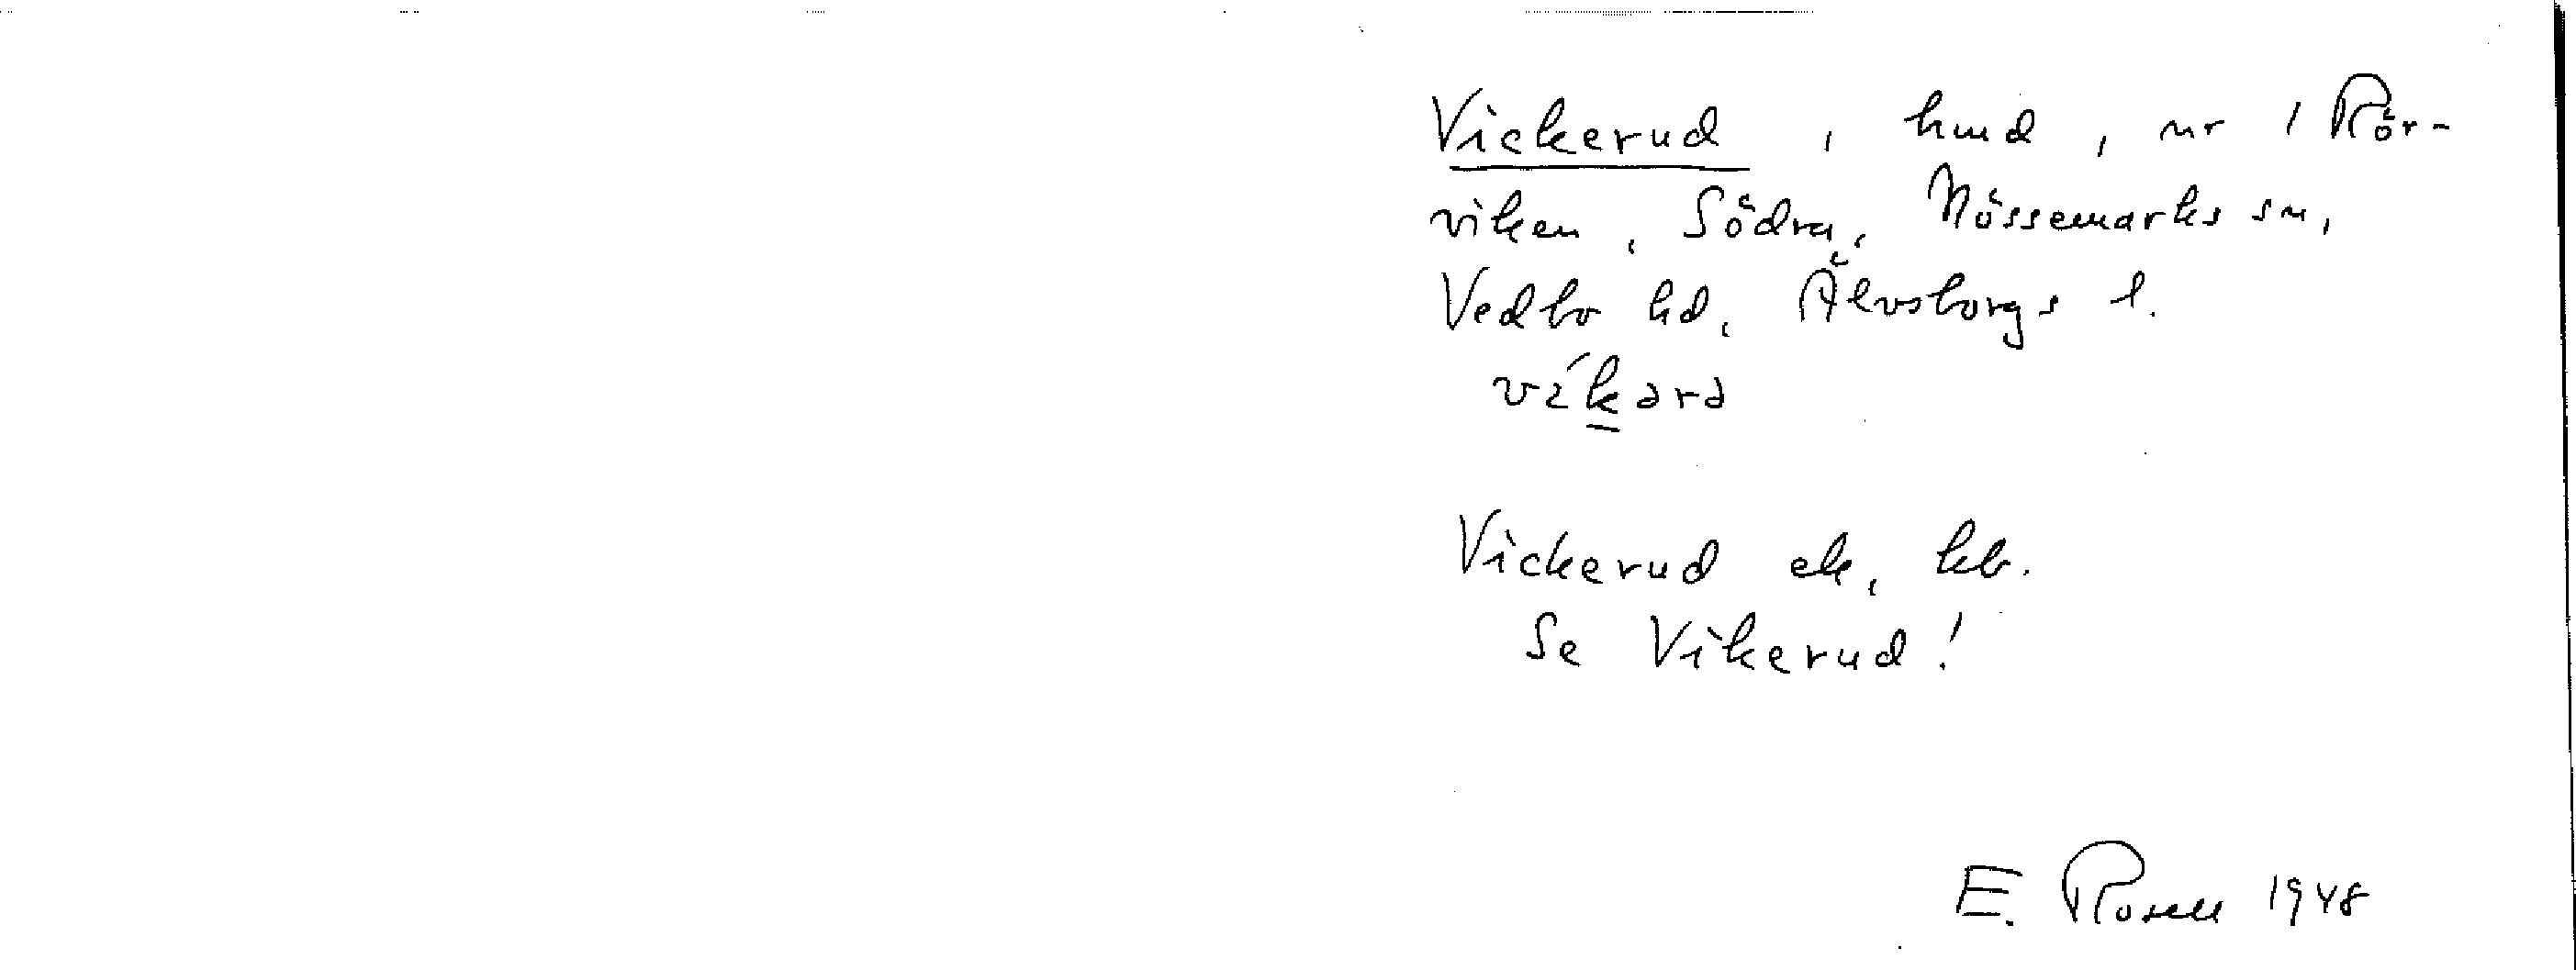 Vickerud, hmd, nr 1 Rör-
viken, Södra, Nössemarks sn,
Vedbo hd, Älvsborgs l.
víkərə
Vickerud ek, kb.
Se Vikerud!
E. Rosell 1948